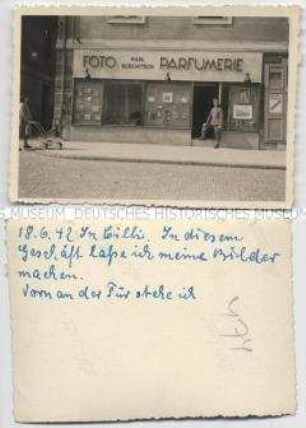 FOTO KARL PARFUMERIE
MUSEUM DEUTSCHES HISTORISCHES MUSEUM
18.6.42 In Cilli. In diesem
Geschäft laße ich meine Bilder
machen.
Vorn an der Tür stehe ich